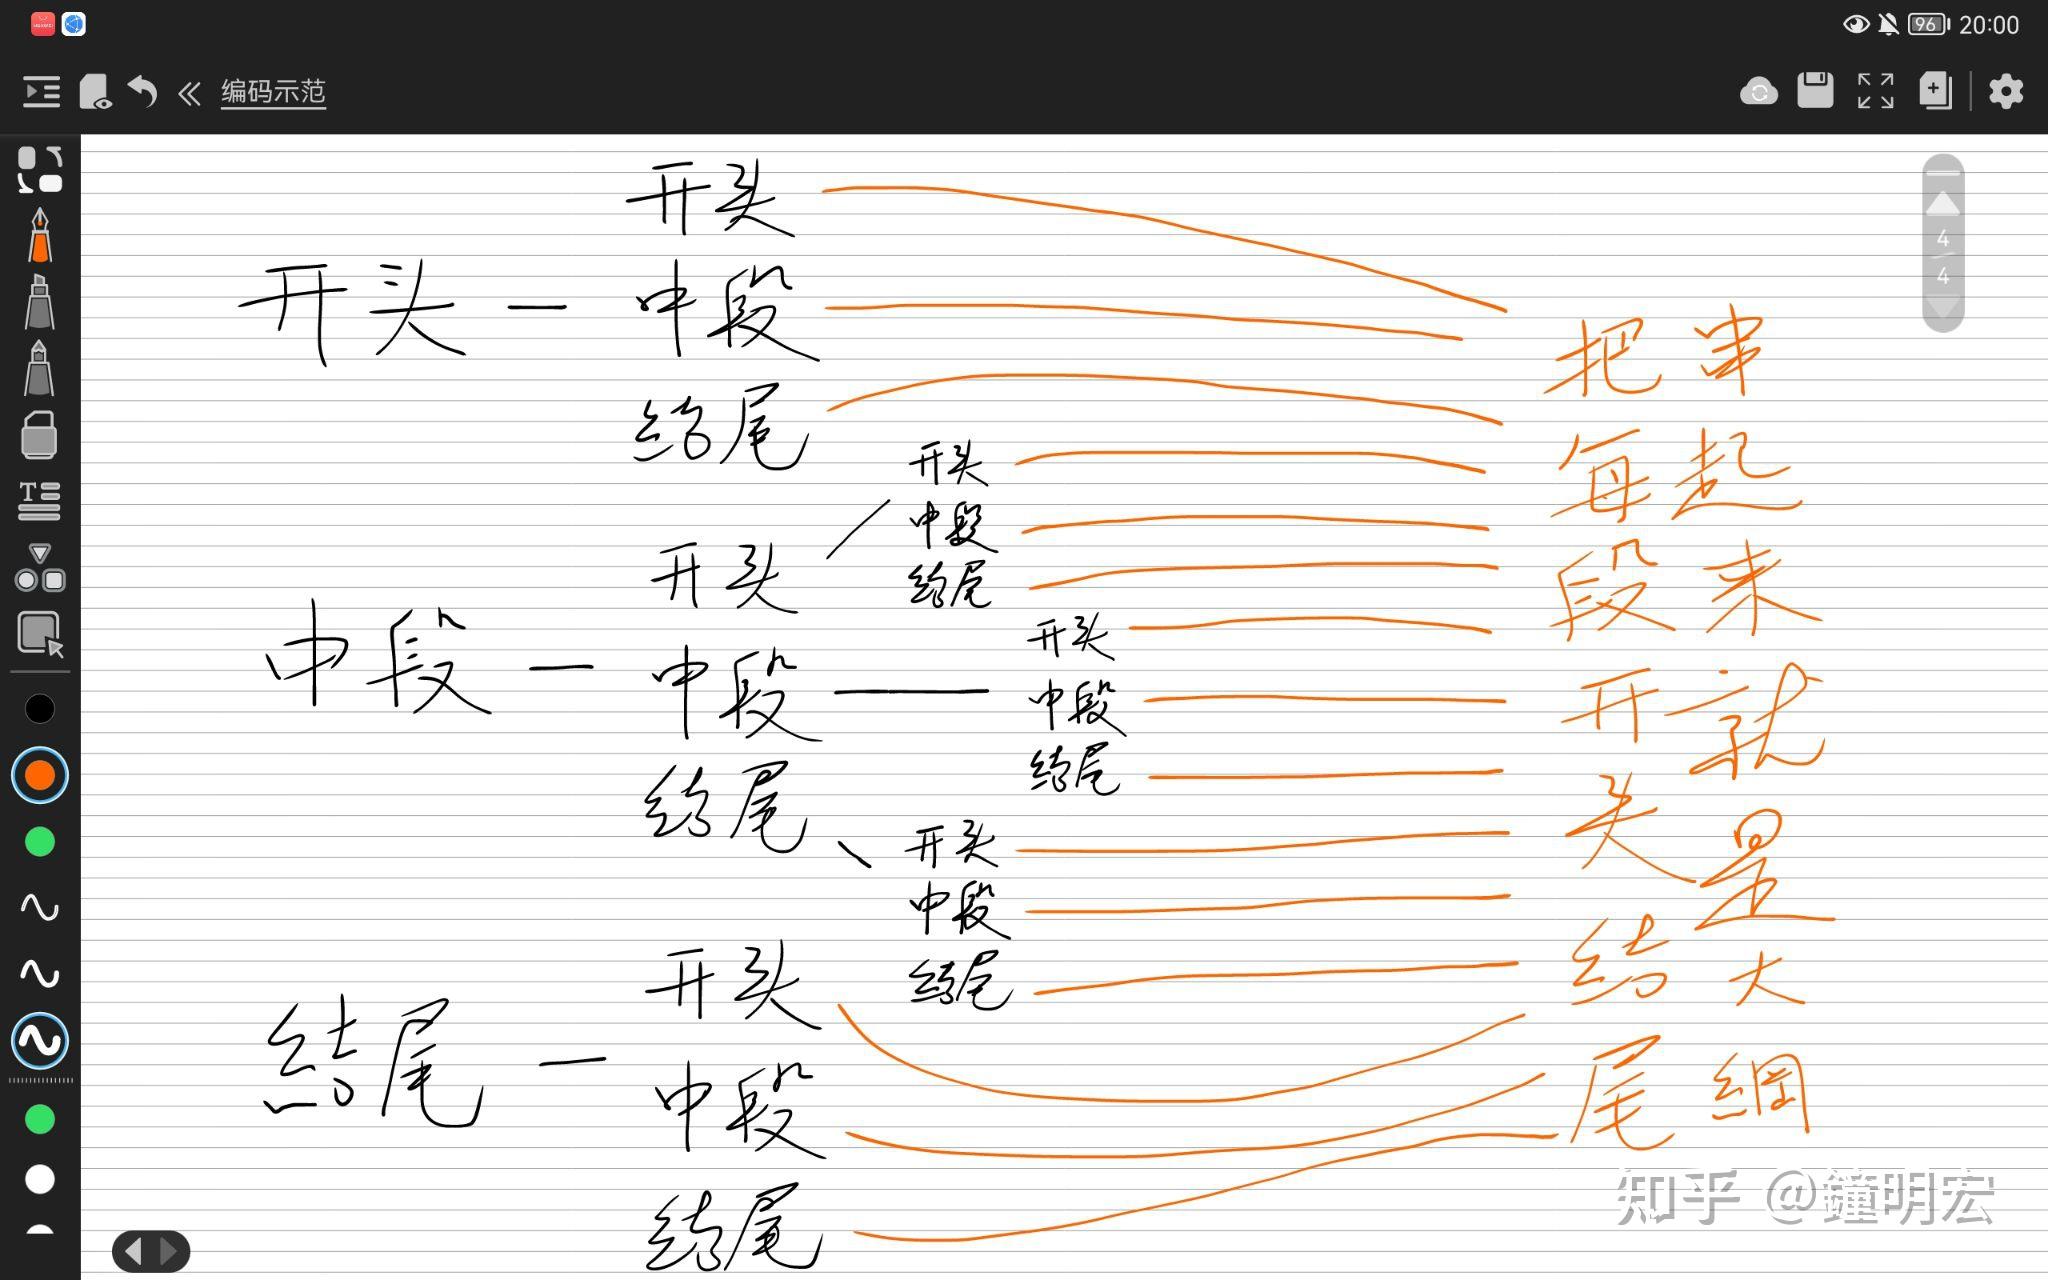 96 20:00
编码示范
4
4
开头
开头 — 中段
结尾
开头
中段
结尾
开头
中段 — 中段
结尾
开头
中段
结尾
开头
中段
结尾
开头
结尾 — 中段
结尾
把每段开头结尾
串起来就是大綱
知乎 @鐘明宏